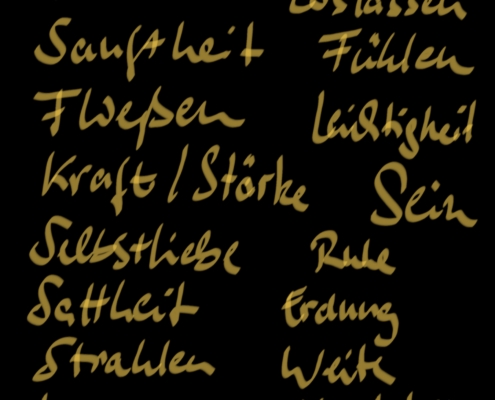 Sanftheit
Fließen
Kraft / Stärke
Selbstliebe
Sattheit
Strahlen
Loslassen
Fühlen
Leichtigkeit
Sein
Ruhe
Erdung
Weite